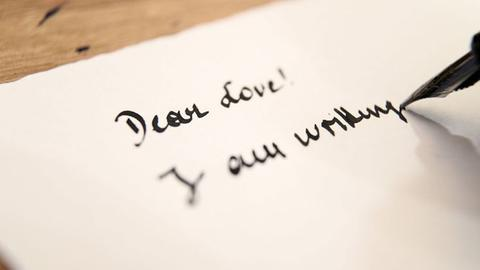 Dear Love!
I am writting